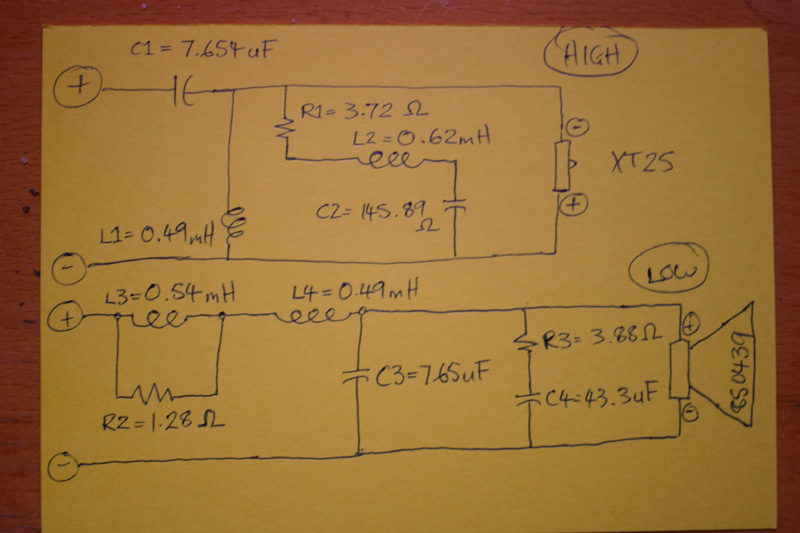 C1 = 7.654uF
HIGH
+
R1 = 3.72 Ω
L2 = 0.62mH
-
XT25
C2 = 145.89
Ω
+
L1 = 0.49mH
-
LOW
+
L3 = 0.54mH
L4 = 0.49mH
+
R3 = 3.88Ω
850439
C3 = 7.65uF
C4 = 43.3uF
-
R2 = 1.28 Ω
-